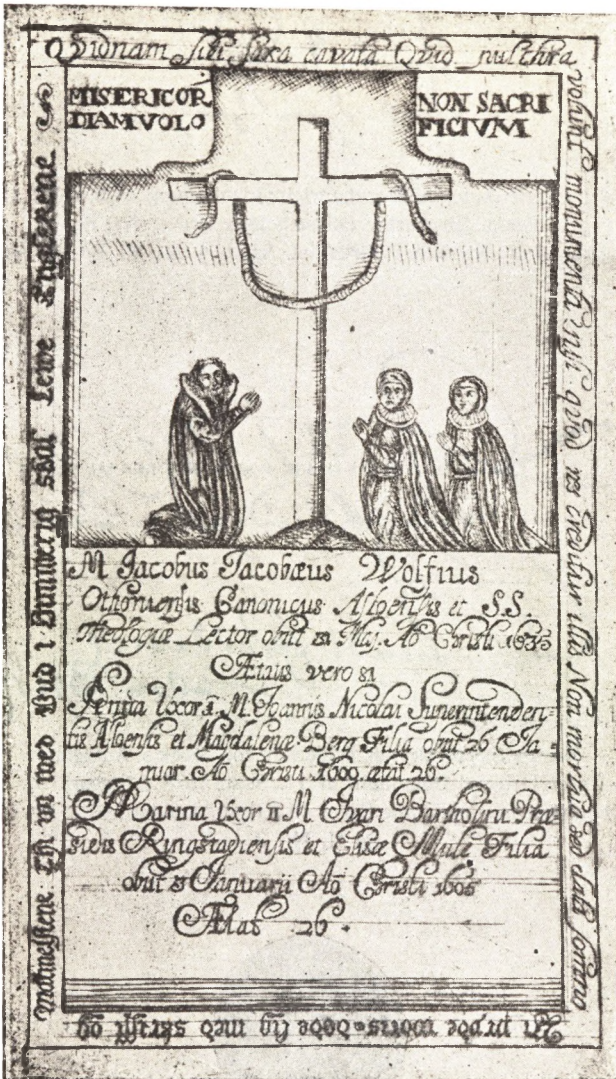 Qvidnam sibi saxa cavata Qvid pulchra
volunt monumenta nisi qvod res creditur illis Non mortua sed data somno
med skrifft og
Thi wi med Gud i skal Lewe Englerene
MISERICOR
DIAM VOLO
NON SACRI
FICIVM
M Jacobus Jacobæus Wolfius
Othoniensis Canonicus Asloensis et S.S.
Theologiæ Lector obiit 21 Maj. Ao Christi 1635
Ætatis vero 81
Uxor I. M. Joannis Nicolai Superintenden=
tis Asloensis et Magdalenæ Berg Filia obiit 26 Ja=
nuar. Ao Christi 1609 ætat 26.
Marina Uxor II M Ivari Bartholini Præ=
sidis Ringstadiensis et Elisæ Mule Filia
obiit 8 Januarii Ao Christi 1605
Ætat 26.